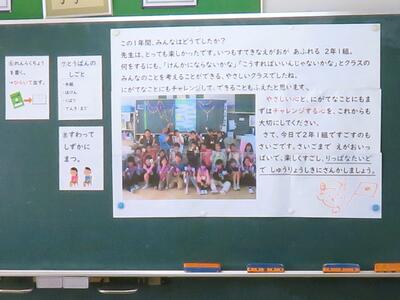 この1年間、みんなはどうでしたか?
先生は、とっても楽しかったです。いつもすてきなえがおが あふれる 2年1組。
何をするにも、「けんかにならないかな」「こうすればいいんじゃないかな」とクラスの
みんなのことを考えることができる、やさしいクラスでしたね。
にがてなことにもチャレンジして、できることもふえたと思います。
やさしい心と、にがてなことにもま
ずはチャレンジする心を、これからも
大切にしてください。
さて、今日で2年1組ですごすのも
さいごです。さいごまで えがおいっ
ぱいで、楽しくすごし、りっぱなたいど
で しゅうりょうしきにさんかしましょう。
⑥れんらくちょう
を書く。
→ひらいて出す。
⑦とうばんの
しごと
⑧すわって
しずかに
まつ。